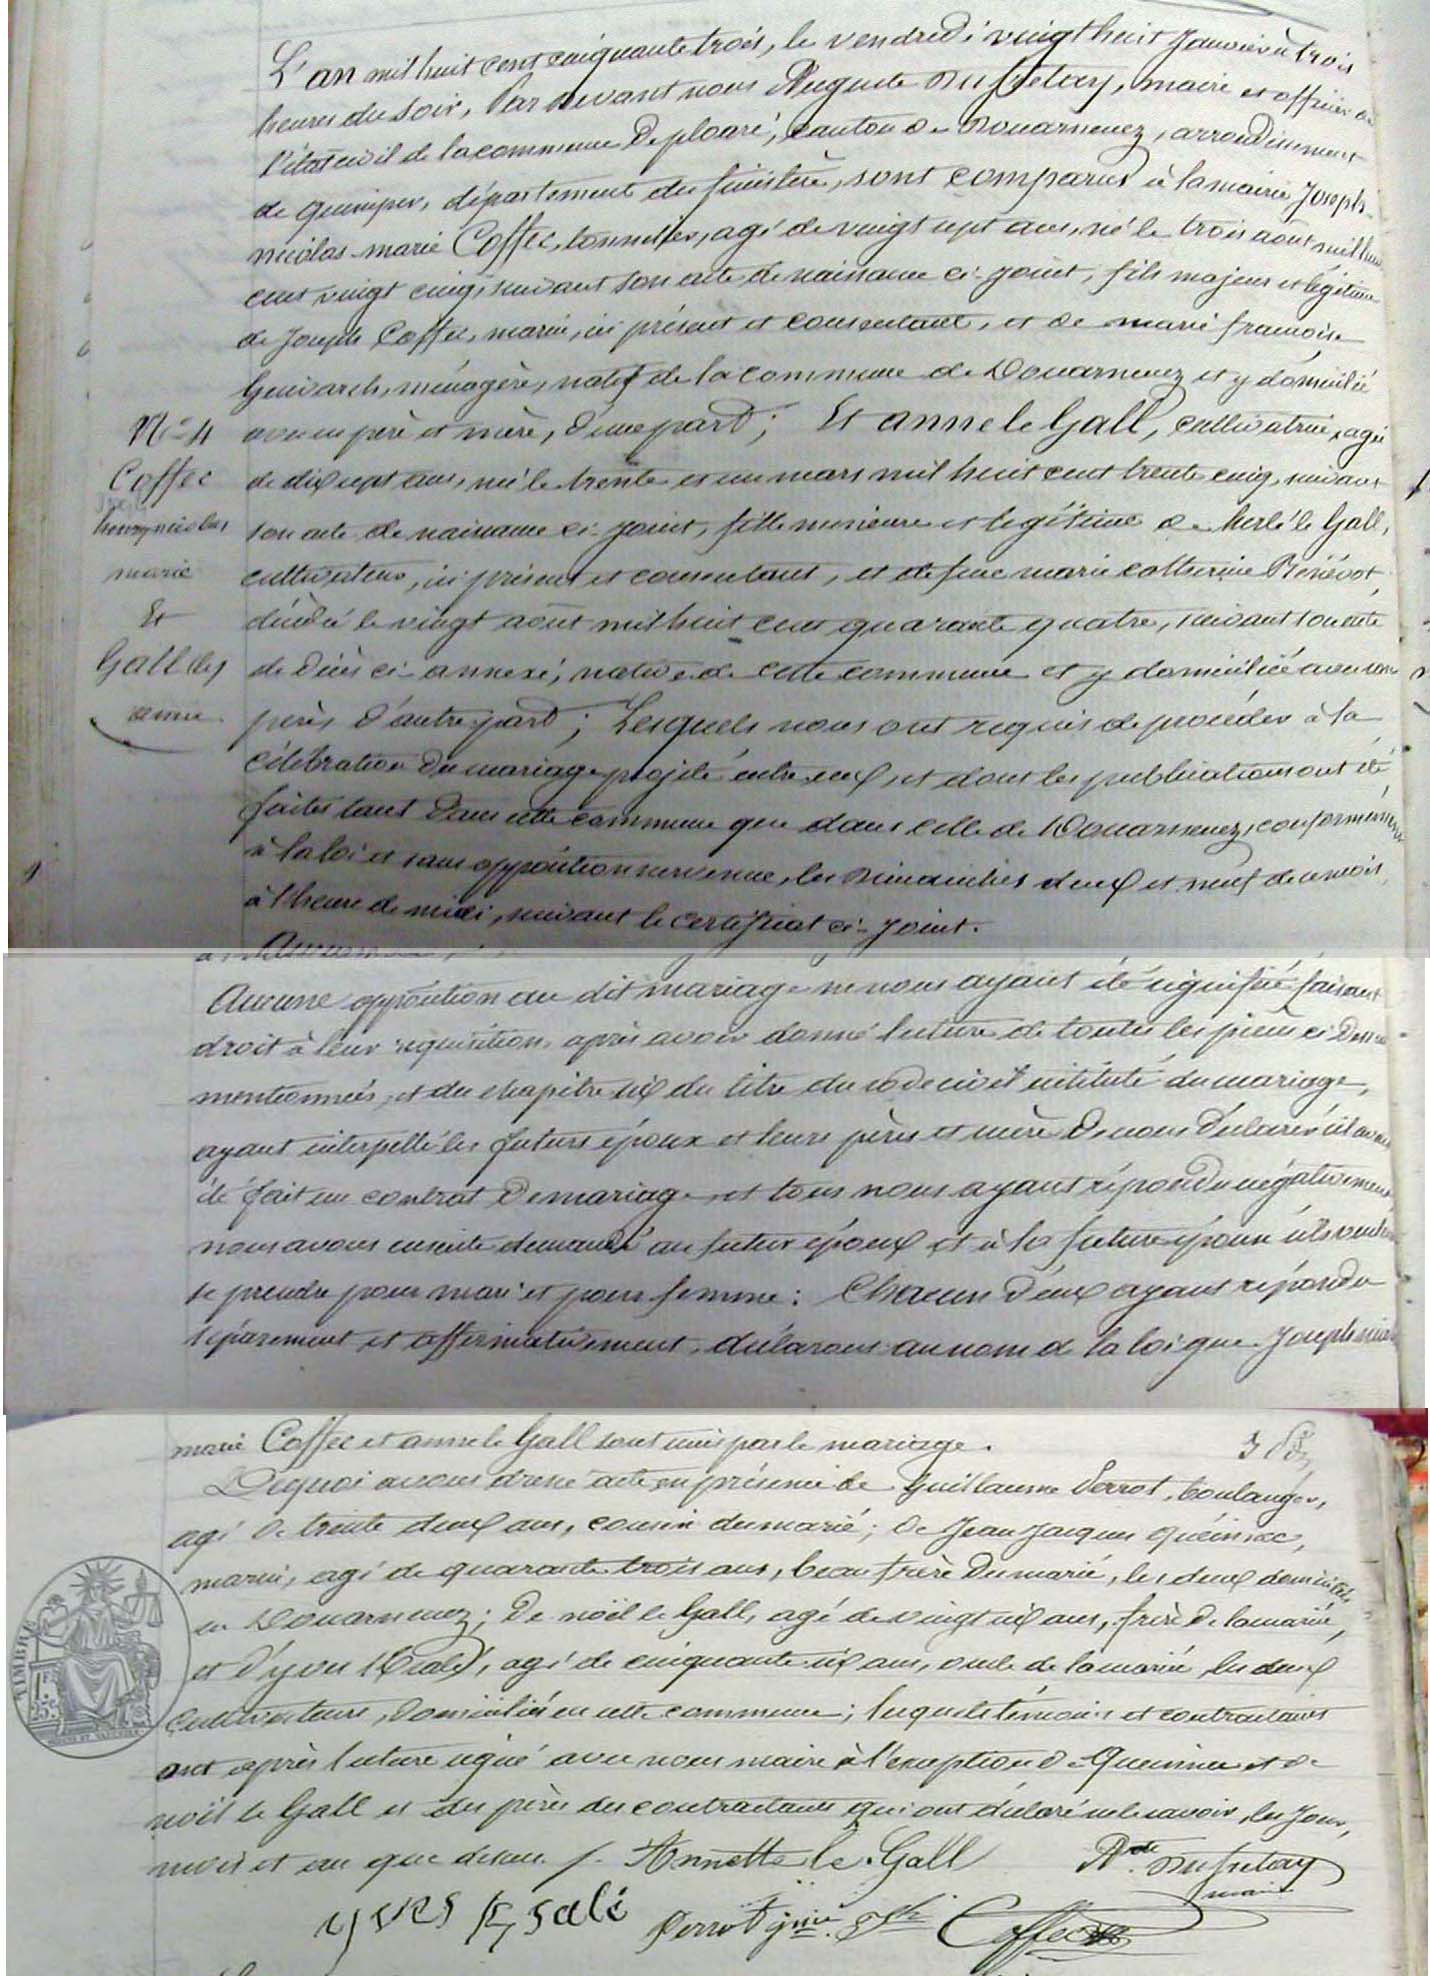 L'an mil huit cent cinquante trois, le vendredi vingt huit Janvier à trois
heures du soir, Par devant nous Auguste Dufretay, maire et officier de
l'état civil de la commune de ploaré, canton de Douarnenez, arrondissement
de quimper, département du finistère, sont comparus à la mairie Joseph-
nicolas-marie Coffec, tonnelier, agé de vingt sept ans, né le trois aout mil huit
cent vingt cinq, suivant son acte de naissance ci-joint, fils majeur et légitime
de Joseph Coffec, marin, ici présent et consentant, et de marie françoise
ménagère, natif de la commune de Douarnenez et y domicilié
avec ses père et mère, d'une part; Et anne le Gall, cultivatrice, agée
N° 4
Coffec
nicolas
marie
Et
Gall (le)
anne
de dix sept ans, née le trente et un mars mil huit cent trente cinq, suivant
son acte de naissance ci-joint, fille mineure et légitime de herlé le Gall,
cultivateur, ici présent et consentant, et de feue marie catherine
décédée le vingt août mil huit cent quarante quatre, suivant son acte
de décès ci-annexé, native de cette commune et y domiciliée avec son
père, d'autre part; Lesquels nous ont requis de procéder à la
célébration du mariage projeté entre eux, et dont les publications ont été
faites tant dans cette commune que dans celle de Douarnenez, conformément
à la loi et sans opposition survenue, les dimanches deux et neuf de ce mois,
à l'heure de midi, suivant le certificat ci-joint.
Aucune opposition au dit mariage ne nous ayant été signifiée, faisant
droit à leur requisition, après avoir donné lecture de toutes les pièces ci-dessus
mentionnées, et du chapitre six du titre du code civil intitulé du mariage,
ayant interpellé les futurs époux et leurs pères et mère de nous déclarer s'il avait
été fait un contrat de mariage, et tous nous ayant répondu négativement
nous avons ensuite demandé au futur époux et à la future épouse s'ils veulent
se prendre pour mari et pour femme: Chacun d'eux ayant répondu
séparement et affirmativement, déclarons au nom de la loi que Joseph nicolas
marie Coffec et anne le Gall sont unis par le mariage.
De quoi avons dressé acte en présence de Guillaume Perrot, boulanger,
agé de trente deux ans, cousin du marié; de Jean Jacques
marin, agé de quarante trois ans, beau frère du marié, les deux domiciliés
en Douarnenez; de noël le Gall, agé de vingt six ans, frère de la mariée,
et d'yves agé de cinquante six ans, oncle de la mariée, les deux
cultivateurs, domiciliés en cette commune; lesquels témoins et contractants
ont après lecture signé avec nous maire à l'exception de et de
noël le Gall et des pères des contractants qui ont déclaré ne le savoir, les jour,
mois et an que dessus. /. Annette le Gall Aste Dufretay
maire
yves Perrot Coffec
TIMBRE